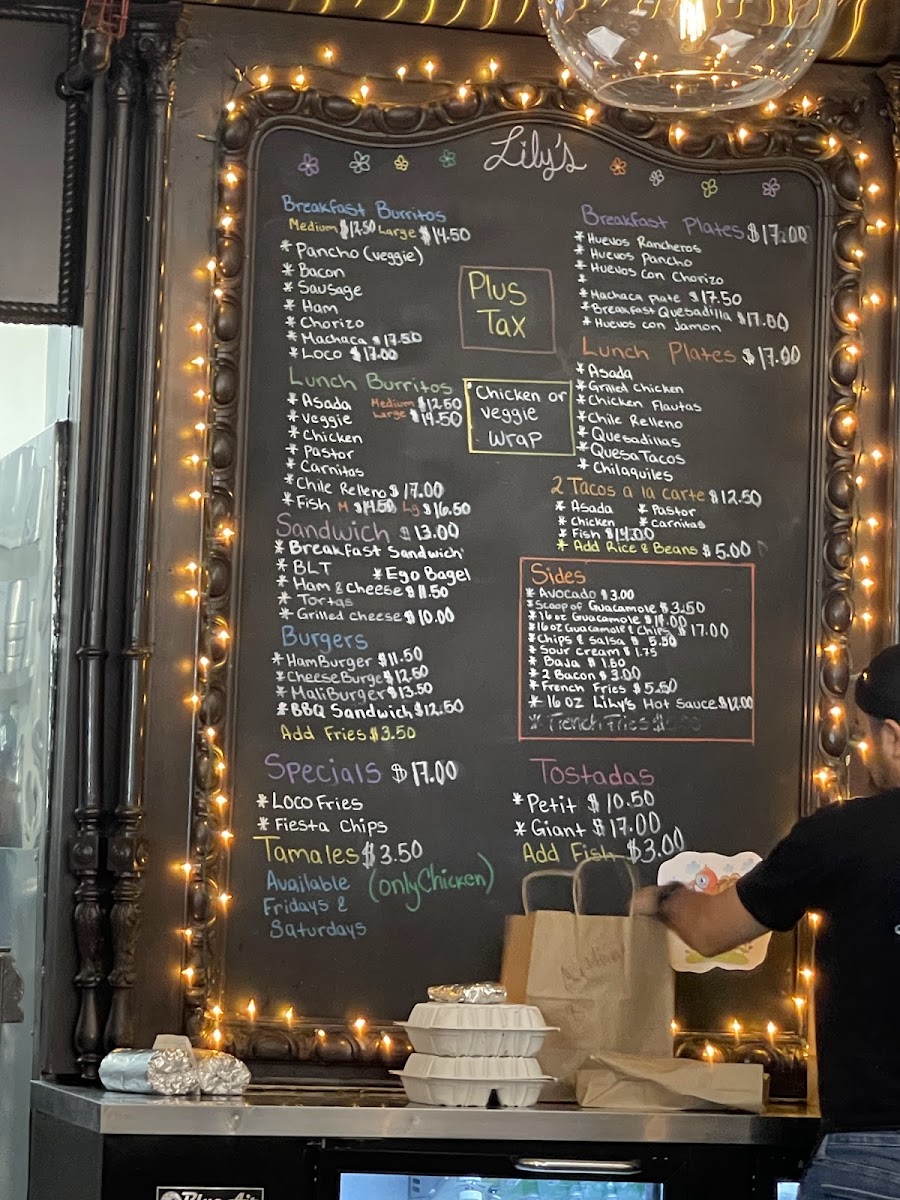 Lily's
Breakfast Burritos
Medium $12.50 Large $14.50
* Pancho (veggie)
* Bacon
* Sausage
* Ham
* Chorizo
* Machaca $17.50
* Loco $17.00
Lunch Burritos
* Asada Medium $12.50
* Veggie Large $14.50
* Chicken
* Pastor
* Carnitas
* Chile Relleno $17.00
* Fish M $14.50 Lg $16.50
Sandwich $13.00
* Breakfast Sandwich
* BLT * Ego Bagel
* Ham & Cheese $11.50
* Tortas
* Grilled Cheese $10.00
Burgers
* HamBurger $11.50
* CheeseBurge $12.50
* MaliBurger $13.50
* BBQ Sandwich $12.50
Add Fries $3.50
Specials $17.00
* Loco Fries
* Fiesta Chips
Tamales $3.50
Available (only Chicken)
Fridays &
Saturdays
Plus
Tax
Chicken or
veggie
Wrap
Breakfast Plates $17.00
* Huevos Rancheros
* Huevos Pancho
* Huevos con Chorizo
*
* Machaca Plate $17.50
* Breakfast Quesadilla $17.00
* Huevos con Jamon
Lunch Plates $17.00
* Asada
* Grilled Chicken
* Chicken Flautas
* Chile Relleno
* Quesadillas
* QuesaTacos
* Chilaquiles
2 Tacos a la carte $12.50
* Asada * Pastor
* Chicken * Carnitas
* Fish $14.00
* Add Rice & Beans $5.00
Sides
* Avocado $3.00
* Scoop of Guacamole $3.50
* 16 oz Guacamole $14.00
* 16 oz Guacamole & Chips $17.00
* Chips & Salsa $5.50
* Sour Cream $1.75
* Baja $1.50
* 2 Bacon $3.00
* French Fries $5.50
* 16 OZ Lily's Hot Sauce $12.00
* French Fries $
Tostadas
* Petit $10.50
* Giant $17.00
Add Fish $3.00
Blue Air